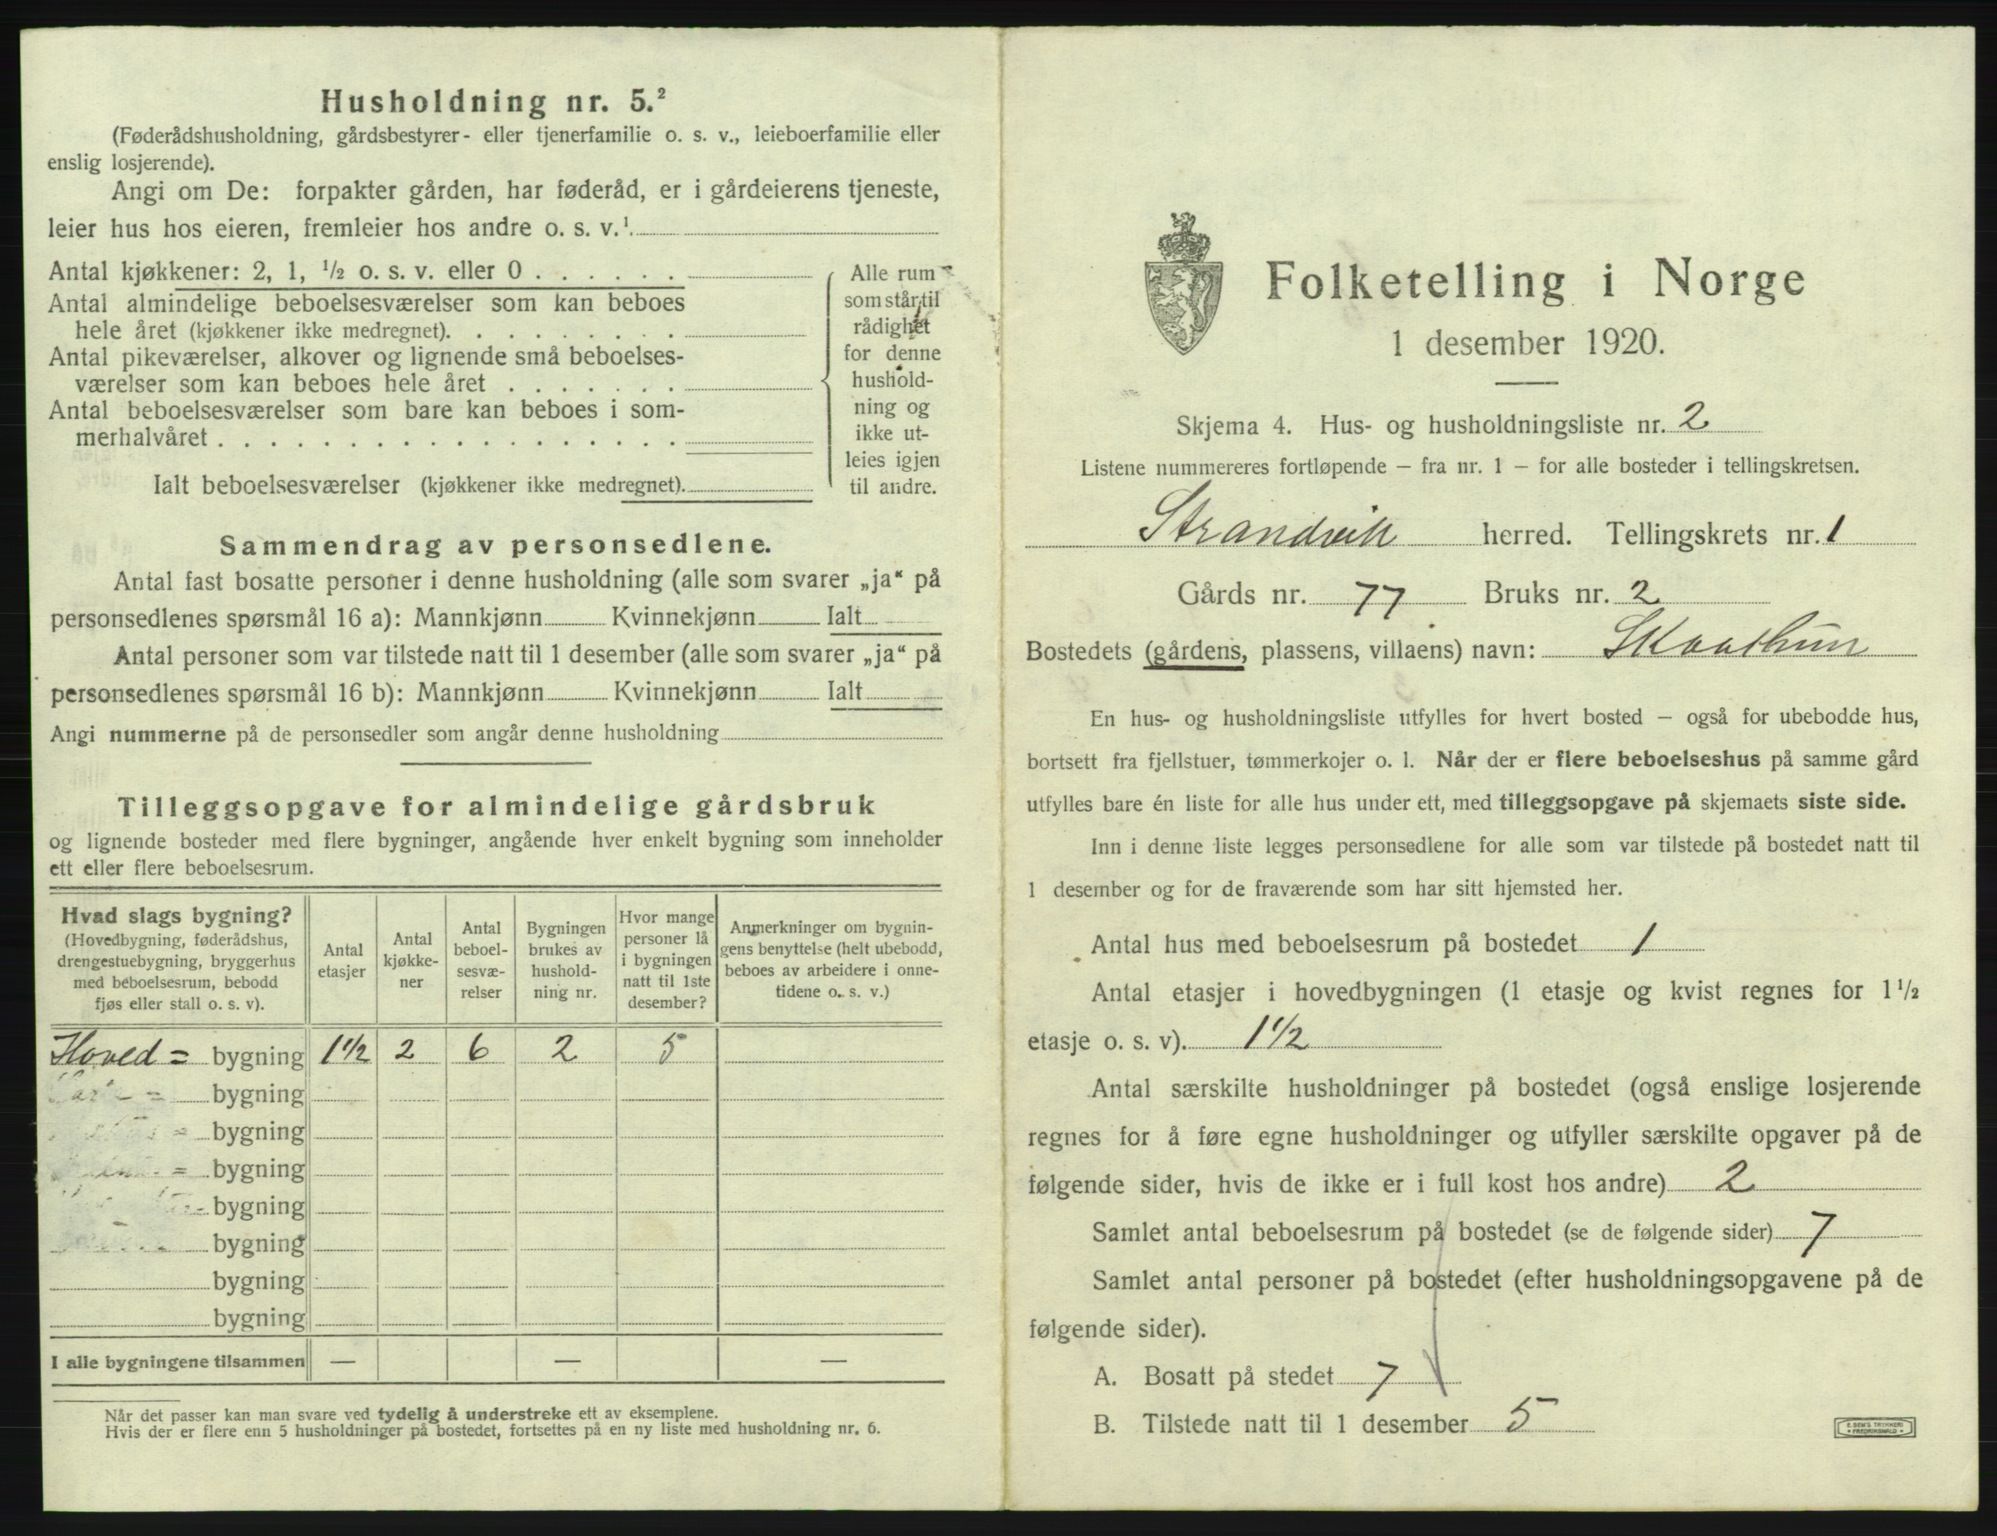 Husholdning nr. 5.²
(Føderådshusholdning, gårdsbestyrer- eller tjenerfamilie o. s. v., leieboerfamilie eller
enslig losjerende).
Angi om De: forpakter gården, har føderåd, er i gårdeierens tjeneste,
leier hus hos eieren, fremleier hos andre o. s. v.¹
Antal kjøkkener: 2, 1, ½ o. s. v. eller 0 . . . . . .
Antal almindelige beboelsesværelser som kan beboes
hele året (kjøkkener ikke medregnet). . . . . . . . .
Antal pikeværelser, alkover og lignende små beboelses-
værelser som kan beboes hele året . . . . . . .
Antal beboelsesværelser som bare kan beboes i som-
merhalvåret . . . . . . . . . . . . . . . . . .
Ialt beboelsesværelser (kjøkkener ikke medregnet).
Alle rum
som står til
rådighet
for denne
hushold-
ning og
ikke ut-
leies igjen
til andre.
Sammendrag av personsedlene.
Antal fast bosatte personer i denne husholdning (alle som svarer „ja“ på
personsedlenes spørsmål 16 a): Mannkjønn Kvinnekjønn Ialt
Antal personer som var tilstede natt til 1 desember (alle som svarer „ja“ på
personsedlenes spørsmål 16 b): Mannkjønn Kvinnekjønn Ialt
Angi nummerne på de personsedler som angår denne husholdning
Tilleggsopgave for almindelige gårdsbruk
og lignende bosteder med flere bygninger, angående hver enkelt bygning som inneholder
ett eller flere beboelsesrum.
Hvad slags bygning?
(Hovedbygning, føderådshus,
drengestuebygning, bryggerhus
med beboelsesrum, bebodd
fjøs eller stall o. s. v).
Antal
etasjer
Antal
kjøkke-
ner
Antal
beboel-
sesvæ-
relser
Bygningen
brukes av
hushold-
ning nr.
Hvor mange
personer lå
i bygningen
natt til 1ste
desember?
Anmerkninger om bygnin-
gens benyttelse (helt ubebodd,
beboes av arbeidere i onne-
tidene o. s. v.)
Hoved= bygning 1½ 2 6 2 5
= bygning
= bygning
= bygning
bygning
bygning
bygning
bygning
I alle bygningene tilsammen — — —
Når det passer kan man svare ved tydelig å understreke ett av eksemplene.
Hvis der er flere enn 5 husholdninger på bostedet, fortsettes på en ny liste med husholdning nr. 6.
Folketelling i Norge
1 desember 1920.
Skjema 4. Hus- og husholdningsliste nr. 2
Listene nummereres fortløpende – fra nr. 1 – for alle bosteder i tellingskretsen.
Strandvik herred. Tellingskrets nr. 1
Gårds nr. 77 Bruks nr. 2
Bostedets (gårdens, plassens, villaens) navn:
En hus- og husholdningsliste utfylles for hvert bosted – også for ubebodde hus,
bortsett fra fjellstuer, tømmerkojer o. l. Når der er flere beboelseshus på samme gård
utfylles bare én liste for alle hus under ett, med tilleggsopgave på skjemaets siste side.
Inn i denne liste legges personsedlene for alle som var tilstede på bostedet natt til
1 desember og for de fraværende som har sitt hjemsted her.
Antal hus med beboelsesrum på bostedet 1
Antal etasjer i hovedbygningen (1 etasje og kvist regnes for 1½
etasje o. s. v). 1½
Antal særskilte husholdninger på bostedet (også enslige losjerende
regnes for å føre egne husholdninger og utfyller særskilte opgaver på de
følgende sider, hvis de ikke er i full kost hos andre) 2
Samlet antal beboelsesrum på bostedet (se de følgende sider) 7
Samlet antal personer på bostedet (efter husholdningsopgavene på de
følgende sider).
A. Bosatt på stedet 7
B. Tilstede natt til 1 desember 5
E. SEM'S TRYKKERI
• FREDRIKSHALD •